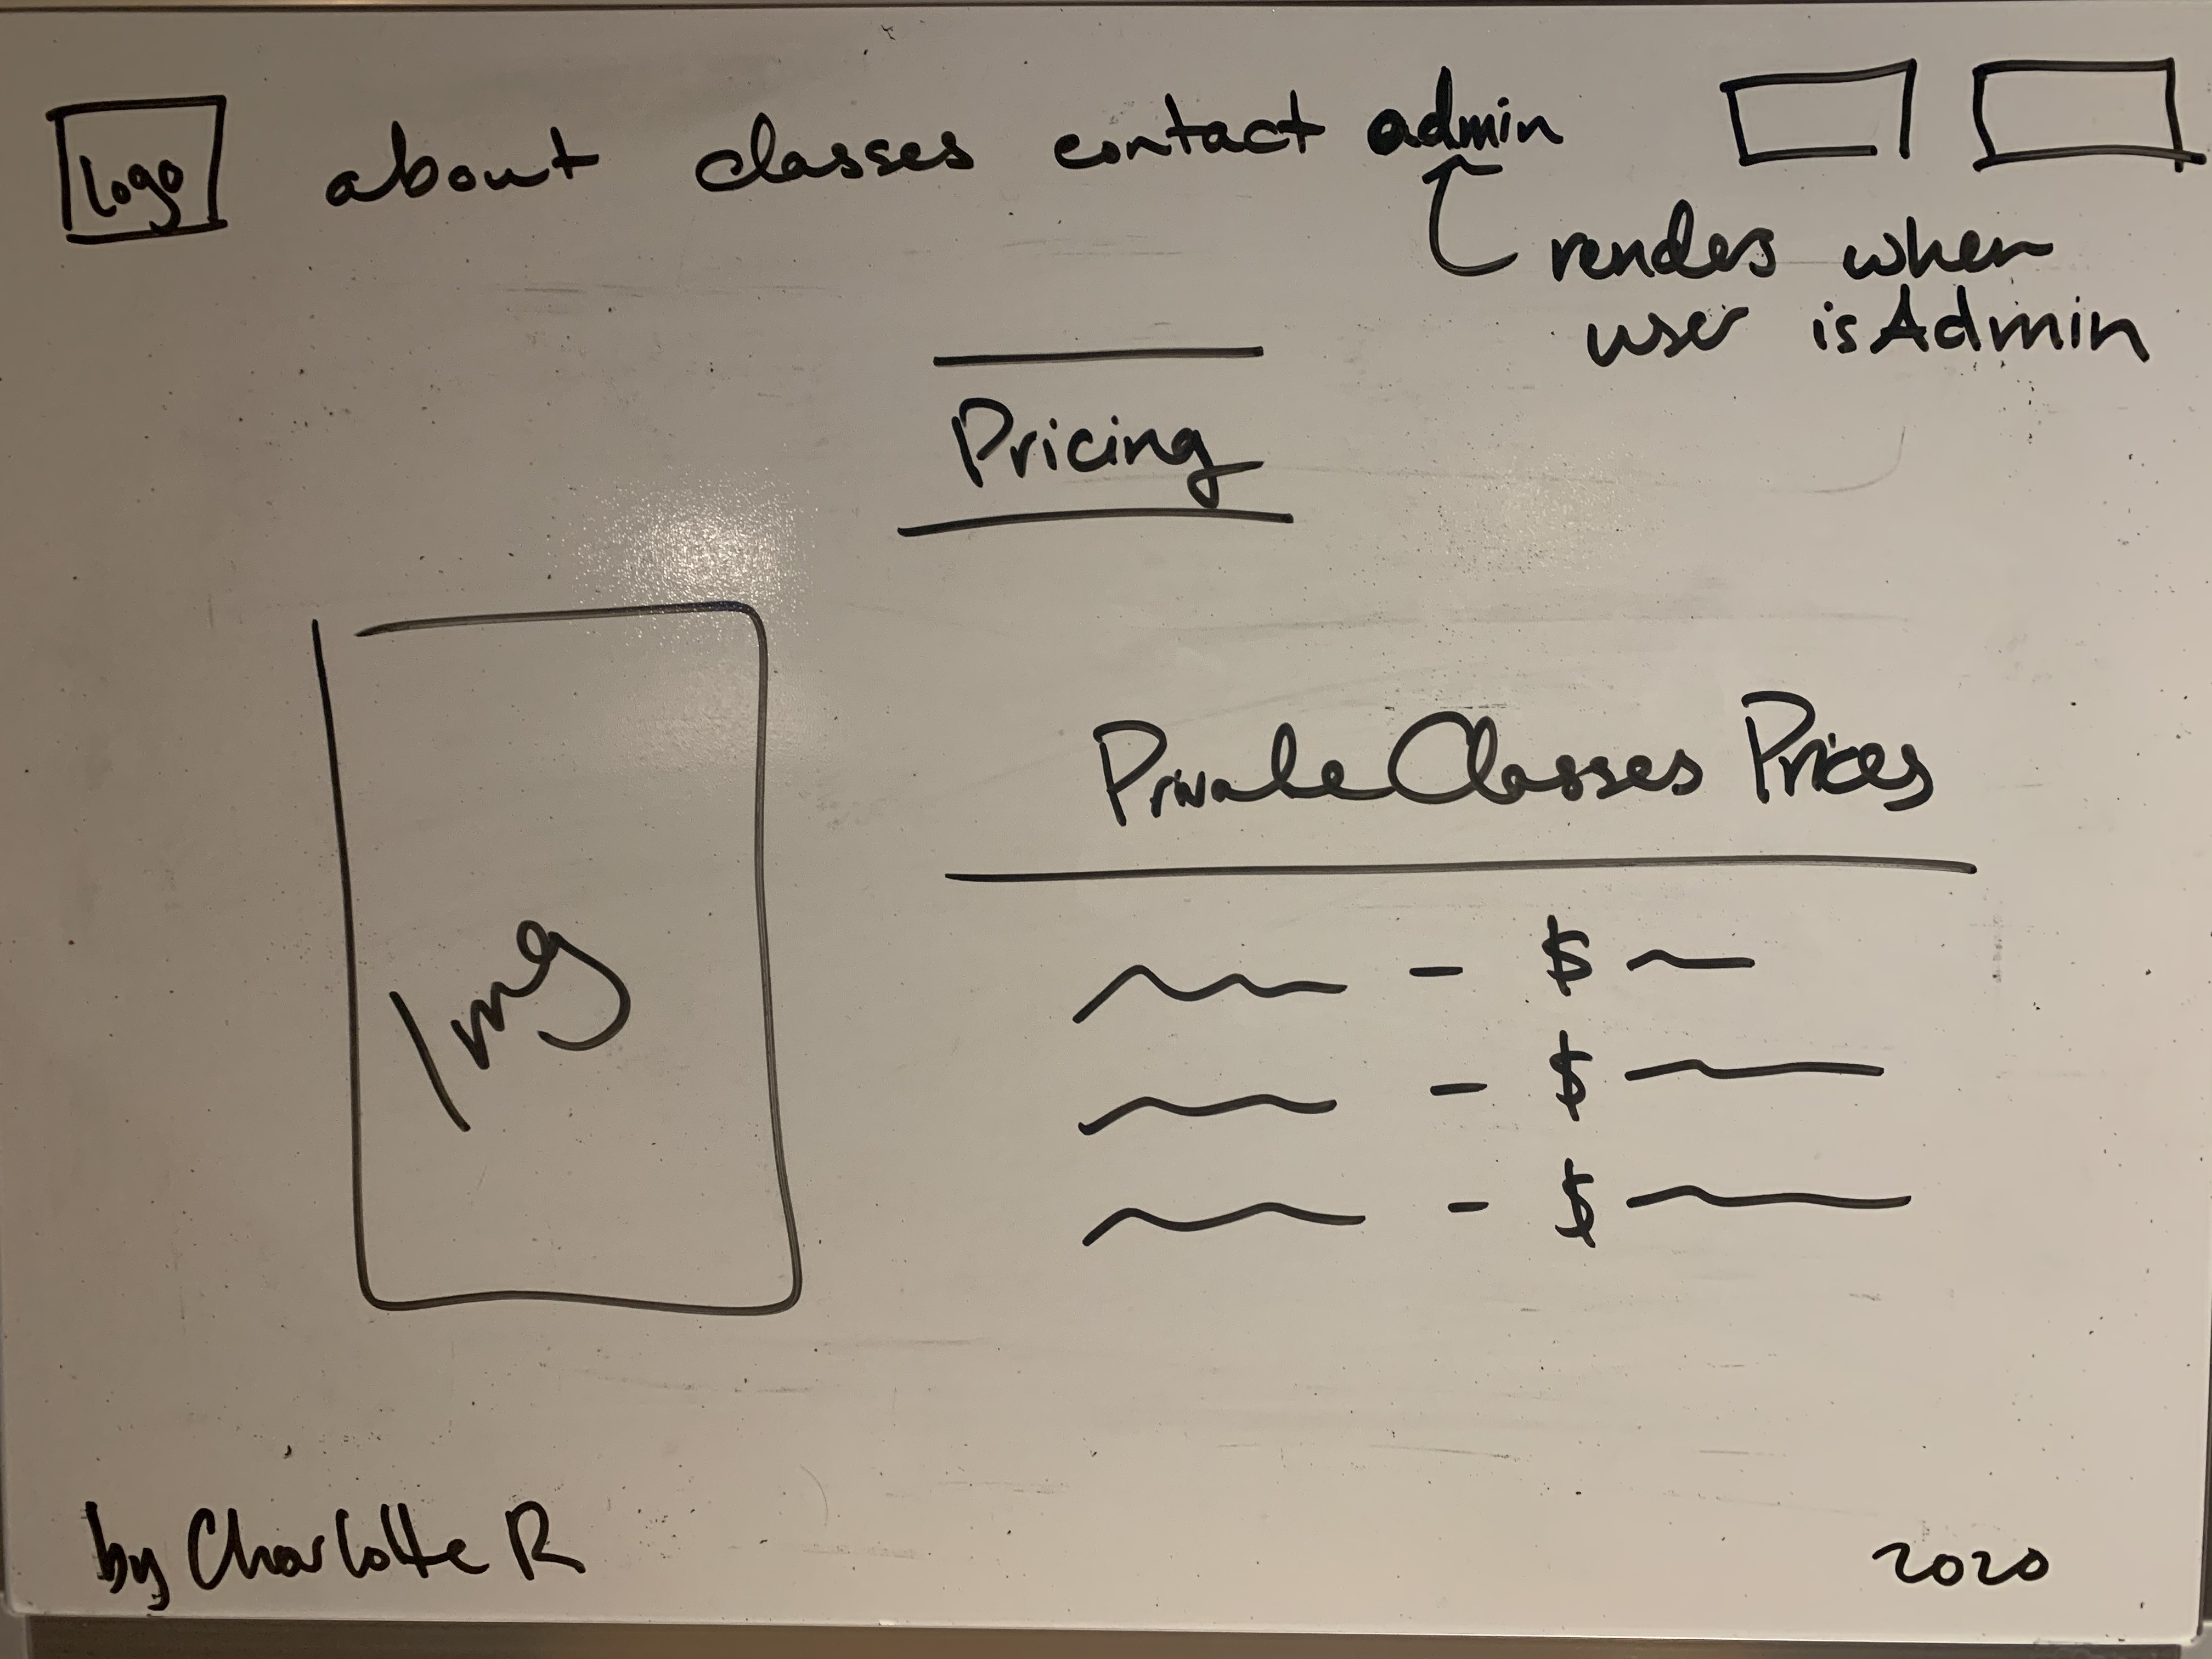 Logo about classes contact admin
renders when
user isAdmin
Pricing
Private Classes Prices
Img
- $
- $
- $
by Charlotte R
2020